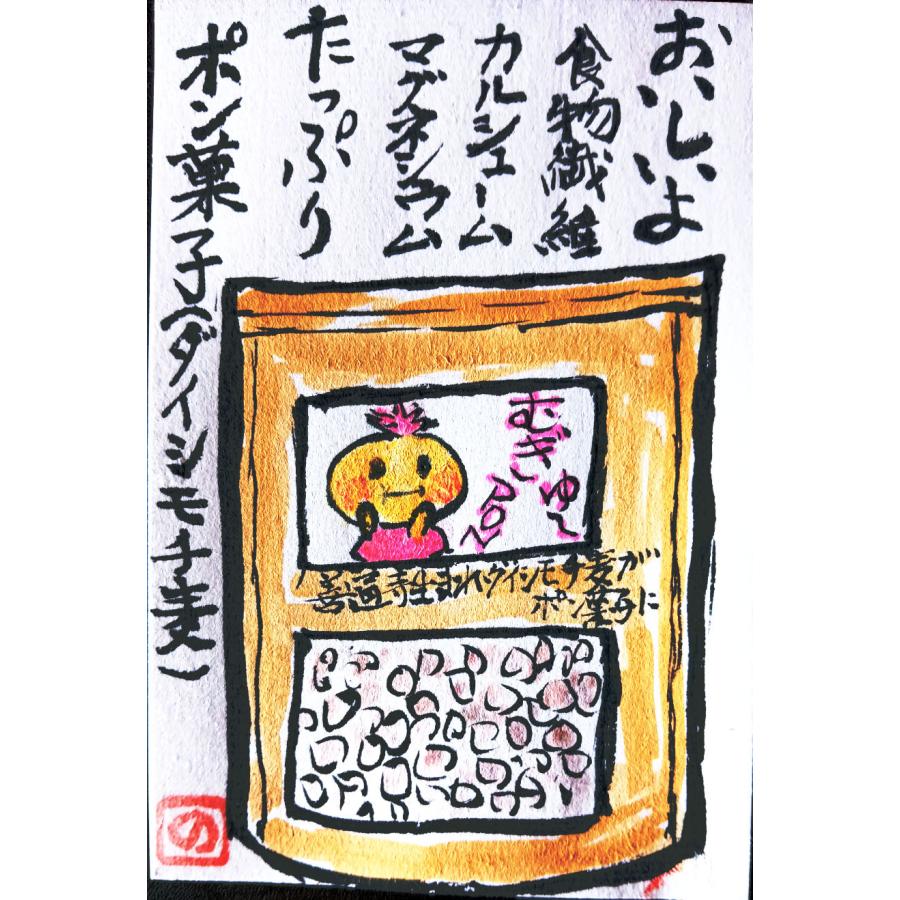 おいしいよ
食物繊維
カルシューム
マグネシウム
たっぷり
ポン菓子(ダイシモチ麦)
むぎゅ～
善通寺生まれダイシモチ麦が
ポン菓子に
の